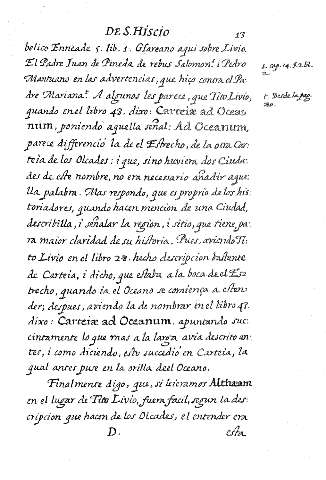 DE S. HISCIO 13
belico Enneade 5. lib. 1. Gsareano aqui sobre Livio.
El Padre Juan de Pineda de rebus Salomon.s i Pedro
Mantuano en las advertencias, que hiço contra el Pa-
dre Mariana.t A algunos les parece, que Tito Livio,
quando en el libro 43. dixo: Carteiæ ad Ocea-
num, poniendo aquella señal: Ad Oceanum,
parece differenciò la de el Estrecho, de la otra Car-
teia de los Olcades: i que, sino huviera dos Ciuda-
des de este nombre, no era necesario añadir aque-
lla palabra. Mas respondo, que es proprio de los his-
toriadores, quando hacen mencion de una Ciudad,
describilla, i señalar la region, i sitio, que tiene, pa-
ra maior claridad de su historia. Pues, aviendo Ti-
to Livio en el libro 28. hecho descripcion bastante
de Carteia, i dicho, que estaba a la boca de el Es-
trecho, quando ia el Oceano se comiença a esten-
der; despues, aviendo la de nombrar en el libro 43.
dixo: Carteiæ ad Oceanum, apuntando suc-
cintamente lo que mas a la larga avia descrito an-
tes, i como diciendo, esto succediò en Carteia, la
qual antes puse en la orilla de el Oceano.
Finalmente digo, que, si leieramos Althæam
en el lugar de Tito Livio, fuera facil, segun la des-
cripcion que hacen de los Olcades, el entender era
D. esta
s. cap. 14. §. 2. li.
t. Desde la pag.